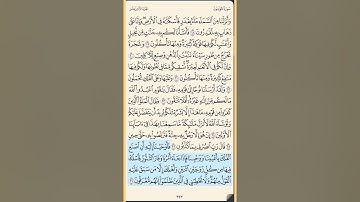 الجزء الثامن عشر
سورة المؤمنون
وَأَنزَلْنَا مِنَ ٱلسَّمَآءِ مَآءًۢ بِقَدَرٍ فَأَسْكَنَّٰهُ فِى ٱلْأَرْضِ وَإِنَّا عَلَىٰ
ذَهَابٍۭ بِهِۦ لَقَٰدِرُونَ ١٨ فَأَنشَأْنَا لَكُم بِهِۦ جَنَّٰتٍ مِّن نَّخِيلٍ
وَأَعْنَٰبٍ لَّكُمْ فِيهَا فَوَٰكِهُ كَثِيرَةٌ وَمِنْهَا تَأْكُلُونَ ١٩ وَشَجَرَةً
تَخْرُجُ مِن طُورِ سَيْنَآءَ تَنۢبُتُ بِٱلدُّهْنِ وَصِبْغٍ لِّلْـَٔاكِلِينَ ٢٠
وَإِنَّ لَكُمْ فِى ٱلْأَنْعَٰمِ لَعِبْرَةً نُّسْقِيكُم مِّمَّا فِى بُطُونِهَا وَلَكُمْ فِيهَا
مَنَٰفِعُ كَثِيرَةٌ وَمِنْهَا تَأْكُلُونَ ٢١ وَعَلَيْهَا وَعَلَى ٱلْفُلْكِ تُحْمَلُونَ ٢٢
وَلَقَدْ أَرْسَلْنَا نُوحًا إِلَىٰ قَوْمِهِۦ فَقَالَ يَٰقَوْمِ ٱعْبُدُوا۟ ٱللَّهَ
مَا لَكُم مِّنْ إِلَٰهٍ غَيْرُهُۥٓ أَفَلَا تَتَّقُونَ ٢٣ فَقَالَ ٱلْمَلَؤُا۟ ٱلَّذِينَ
كَفَرُوا۟ مِن قَوْمِهِۦ مَا هَٰذَآ إِلَّا بَشَرٌ مِّثْلُكُمْ يُرِيدُ أَن يَتَفَضَّلَ عَلَيْكُمْ
وَلَوْ شَآءَ ٱللَّهُ لَأَنزَلَ مَلَٰٓئِكَةً مَّا سَمِعْنَا بِهَٰذَا فِىٓ ءَابَآئِنَا
ٱلْأَوَّلِينَ ٢٤ إِنْ هُوَ إِلَّا رَجُلٌۢ بِهِۦ جِنَّةٌ فَتَرَبَّصُوا۟ بِهِۦ حَتَّىٰ حِينٍ
٢٥ قَالَ رَبِّ ٱنصُرْنِى بِمَا كَذَّبُونِ ٢٦ فَأَوْحَيْنَآ إِلَيْهِ أَنِ ٱصْنَعِ
ٱلْفُلْكَ بِأَعْيُنِنَا وَوَحْيِنَا فَإِذَا جَآءَ أَمْرُنَا وَفَارَ ٱلتَّنُّورُ فَٱسْلُكْ
فِيهَا مِن كُلٍّ زَوْجَيْنِ ٱثْنَيْنِ وَأَهْلَكَ إِلَّا مَن سَبَقَ عَلَيْهِ
ٱلْقَوْلُ مِنْهُمْ وَلَا تُخَٰطِبْنِى فِى ٱلَّذِينَ ظَلَمُوٓا۟ إِنَّهُم مُّغْرَقُونَ ٢٧
٣٤٣